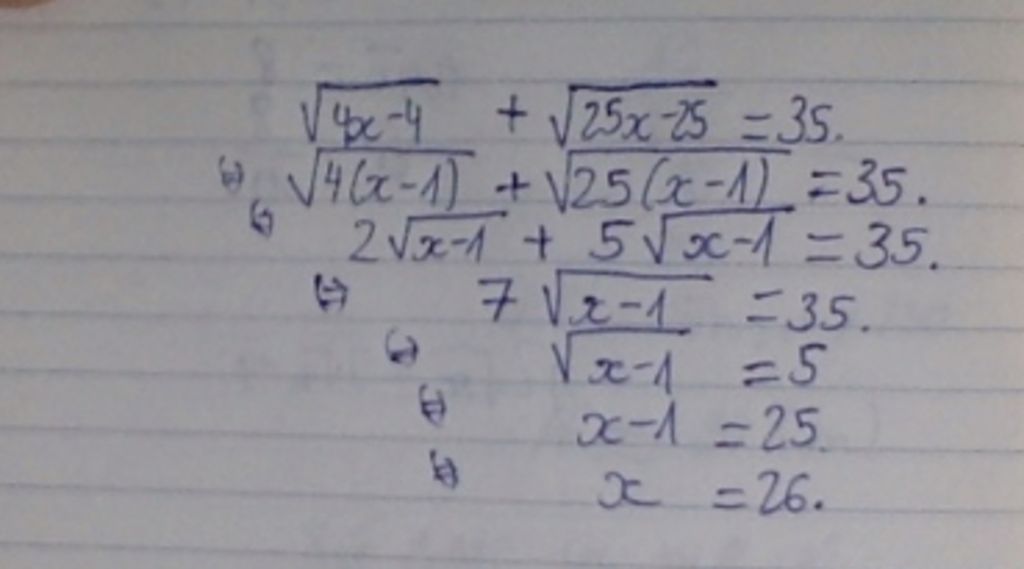 √4x-4 + √25x-25 = 35.
⇔ √4(x-1) + √25(x-1) = 35.
⇔ 2√x-1 + 5√x-1 = 35.
⇔ 7√x-1 = 35.
⇔ √x-1 = 5
⇔ x-1 = 25.
⇔ x = 26.